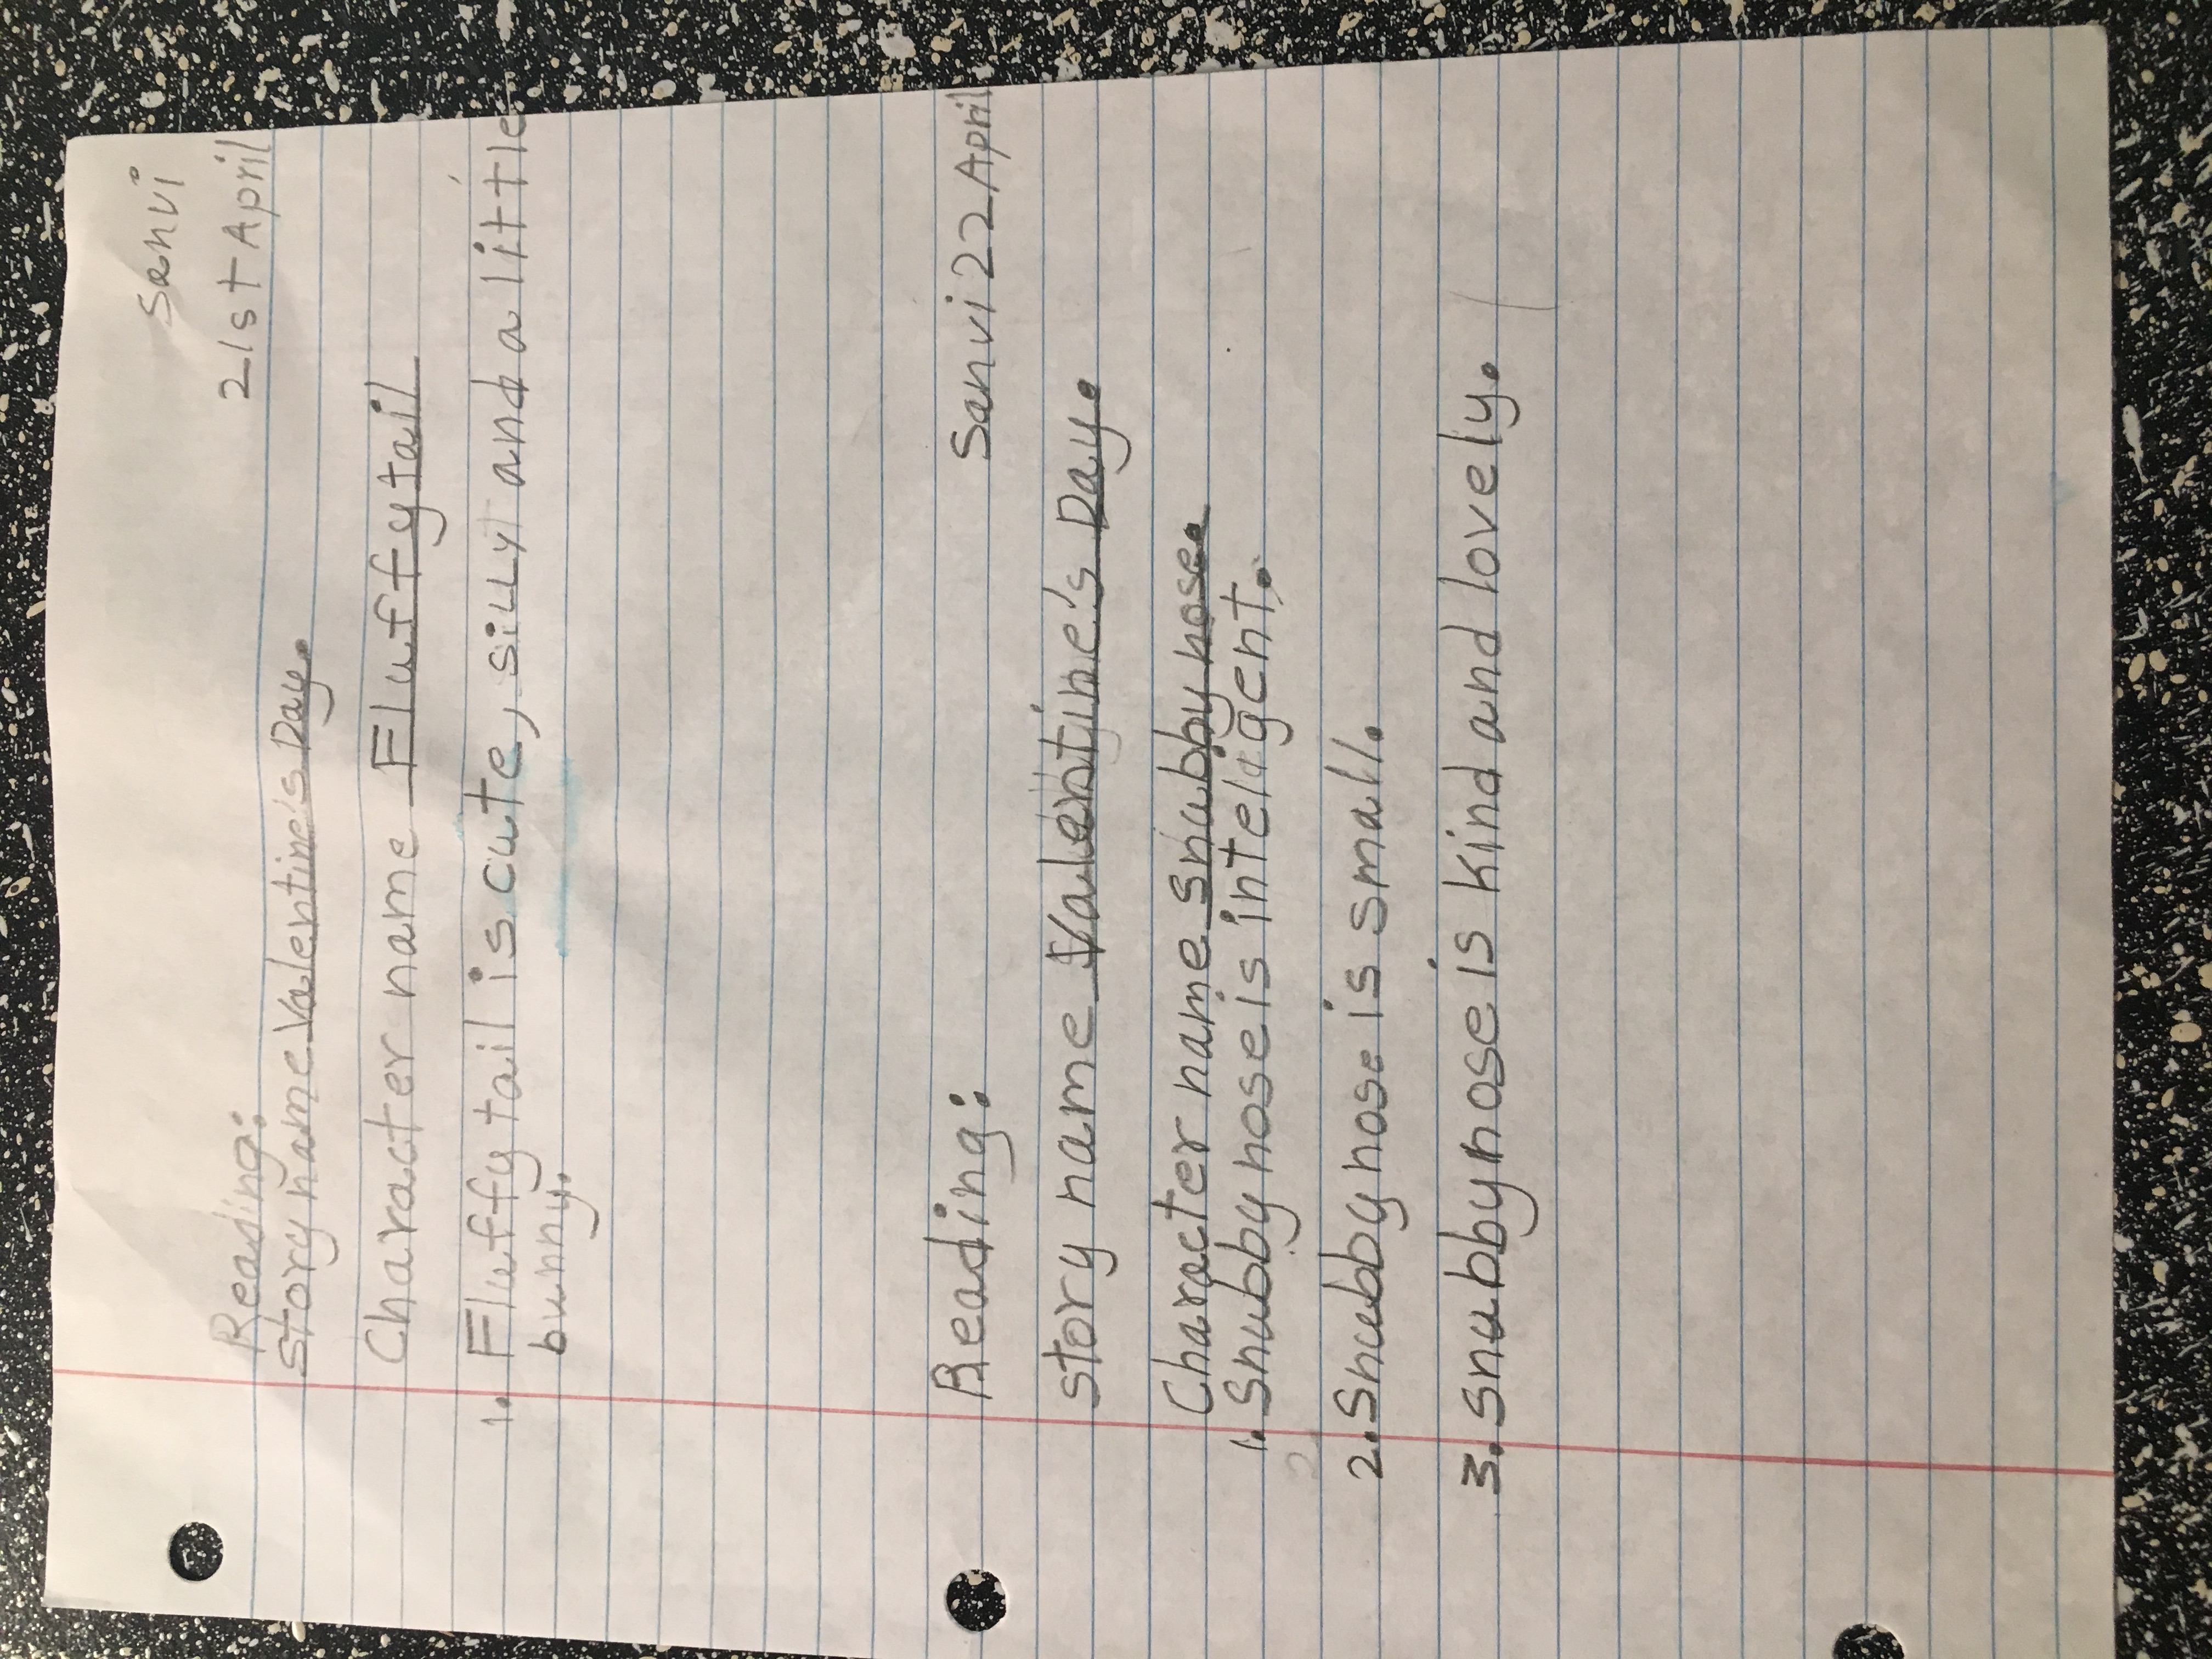 Sanvi
21st April
Reading:
Story name Valentine's Day.
Character name Fluffytail
1. Fluffy tail is cute, silly and a little
bunny.
Reading: Sanvi 22 April
story name Valentine's Day.
Character name snubby nose.
1. Snubby nose is inteligent.
2.
2. Snubby nose is small.
3. snubby nose is kind and lovely.